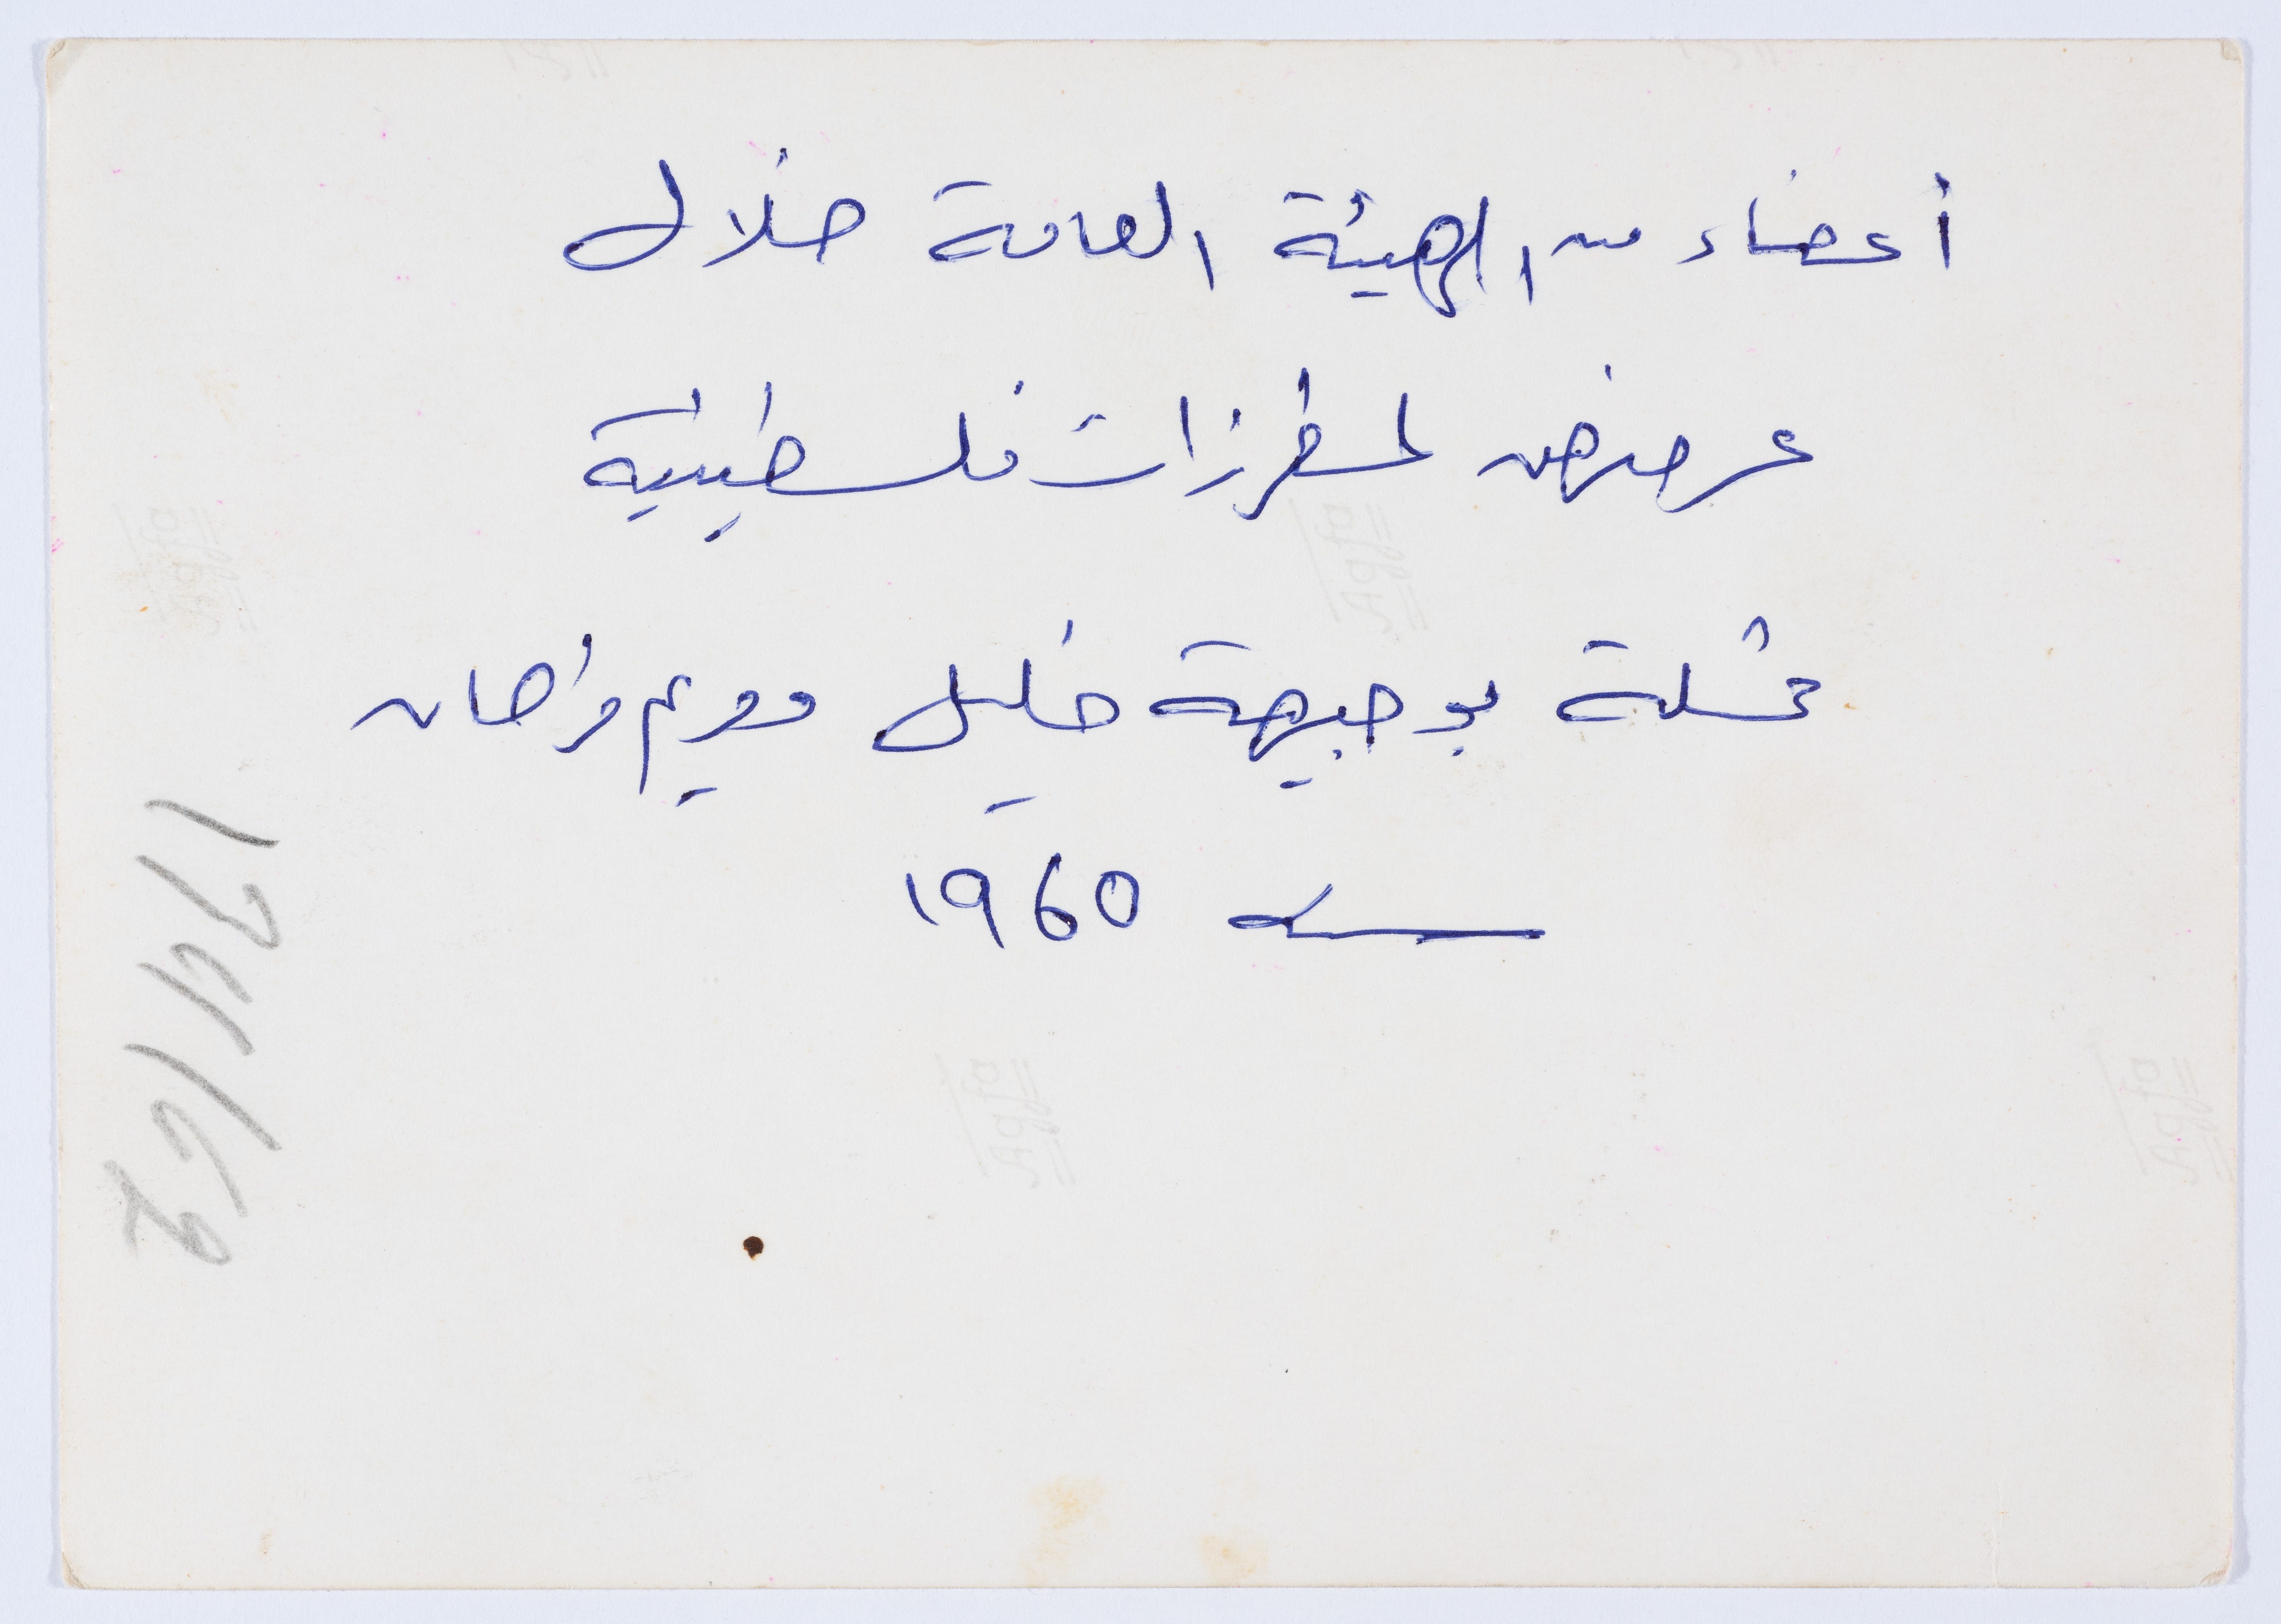 أعضاء من الهيئة العامة خلال
عرض لمطرزات فلسطينية
ممثلة بوجيهة خليل ومريم
سنة 1960
174/62
Agfa
Agfa
Agfa
Agfa